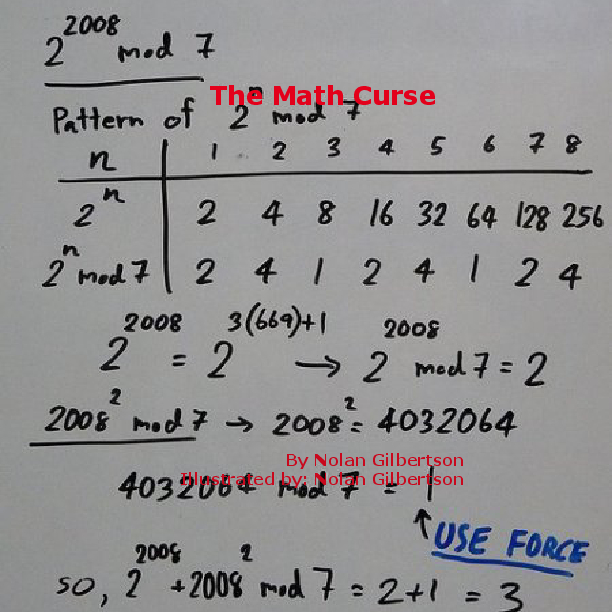 2^2008 mod 7
The Math Curse
Pattern of 2^n mod 7
n 1 2 3 4 5 6 7 8
2^n 2 4 8 16 32 64 128 256
2^n mod 7 2 4 1 2 4 1 2 4
2^2008 = 2^3(669)+1 → 2^2008 mod 7 = 2
2008^2 mod 7 → 2008^2 = 4032064
By Nolan Gilbertson
Illustrated by: Nolan Gilbertson
4032064 mod 7 = 1
↑ USE FORCE
so, 2^2008 + 2008^2 mod 7 = 2+1 = 3